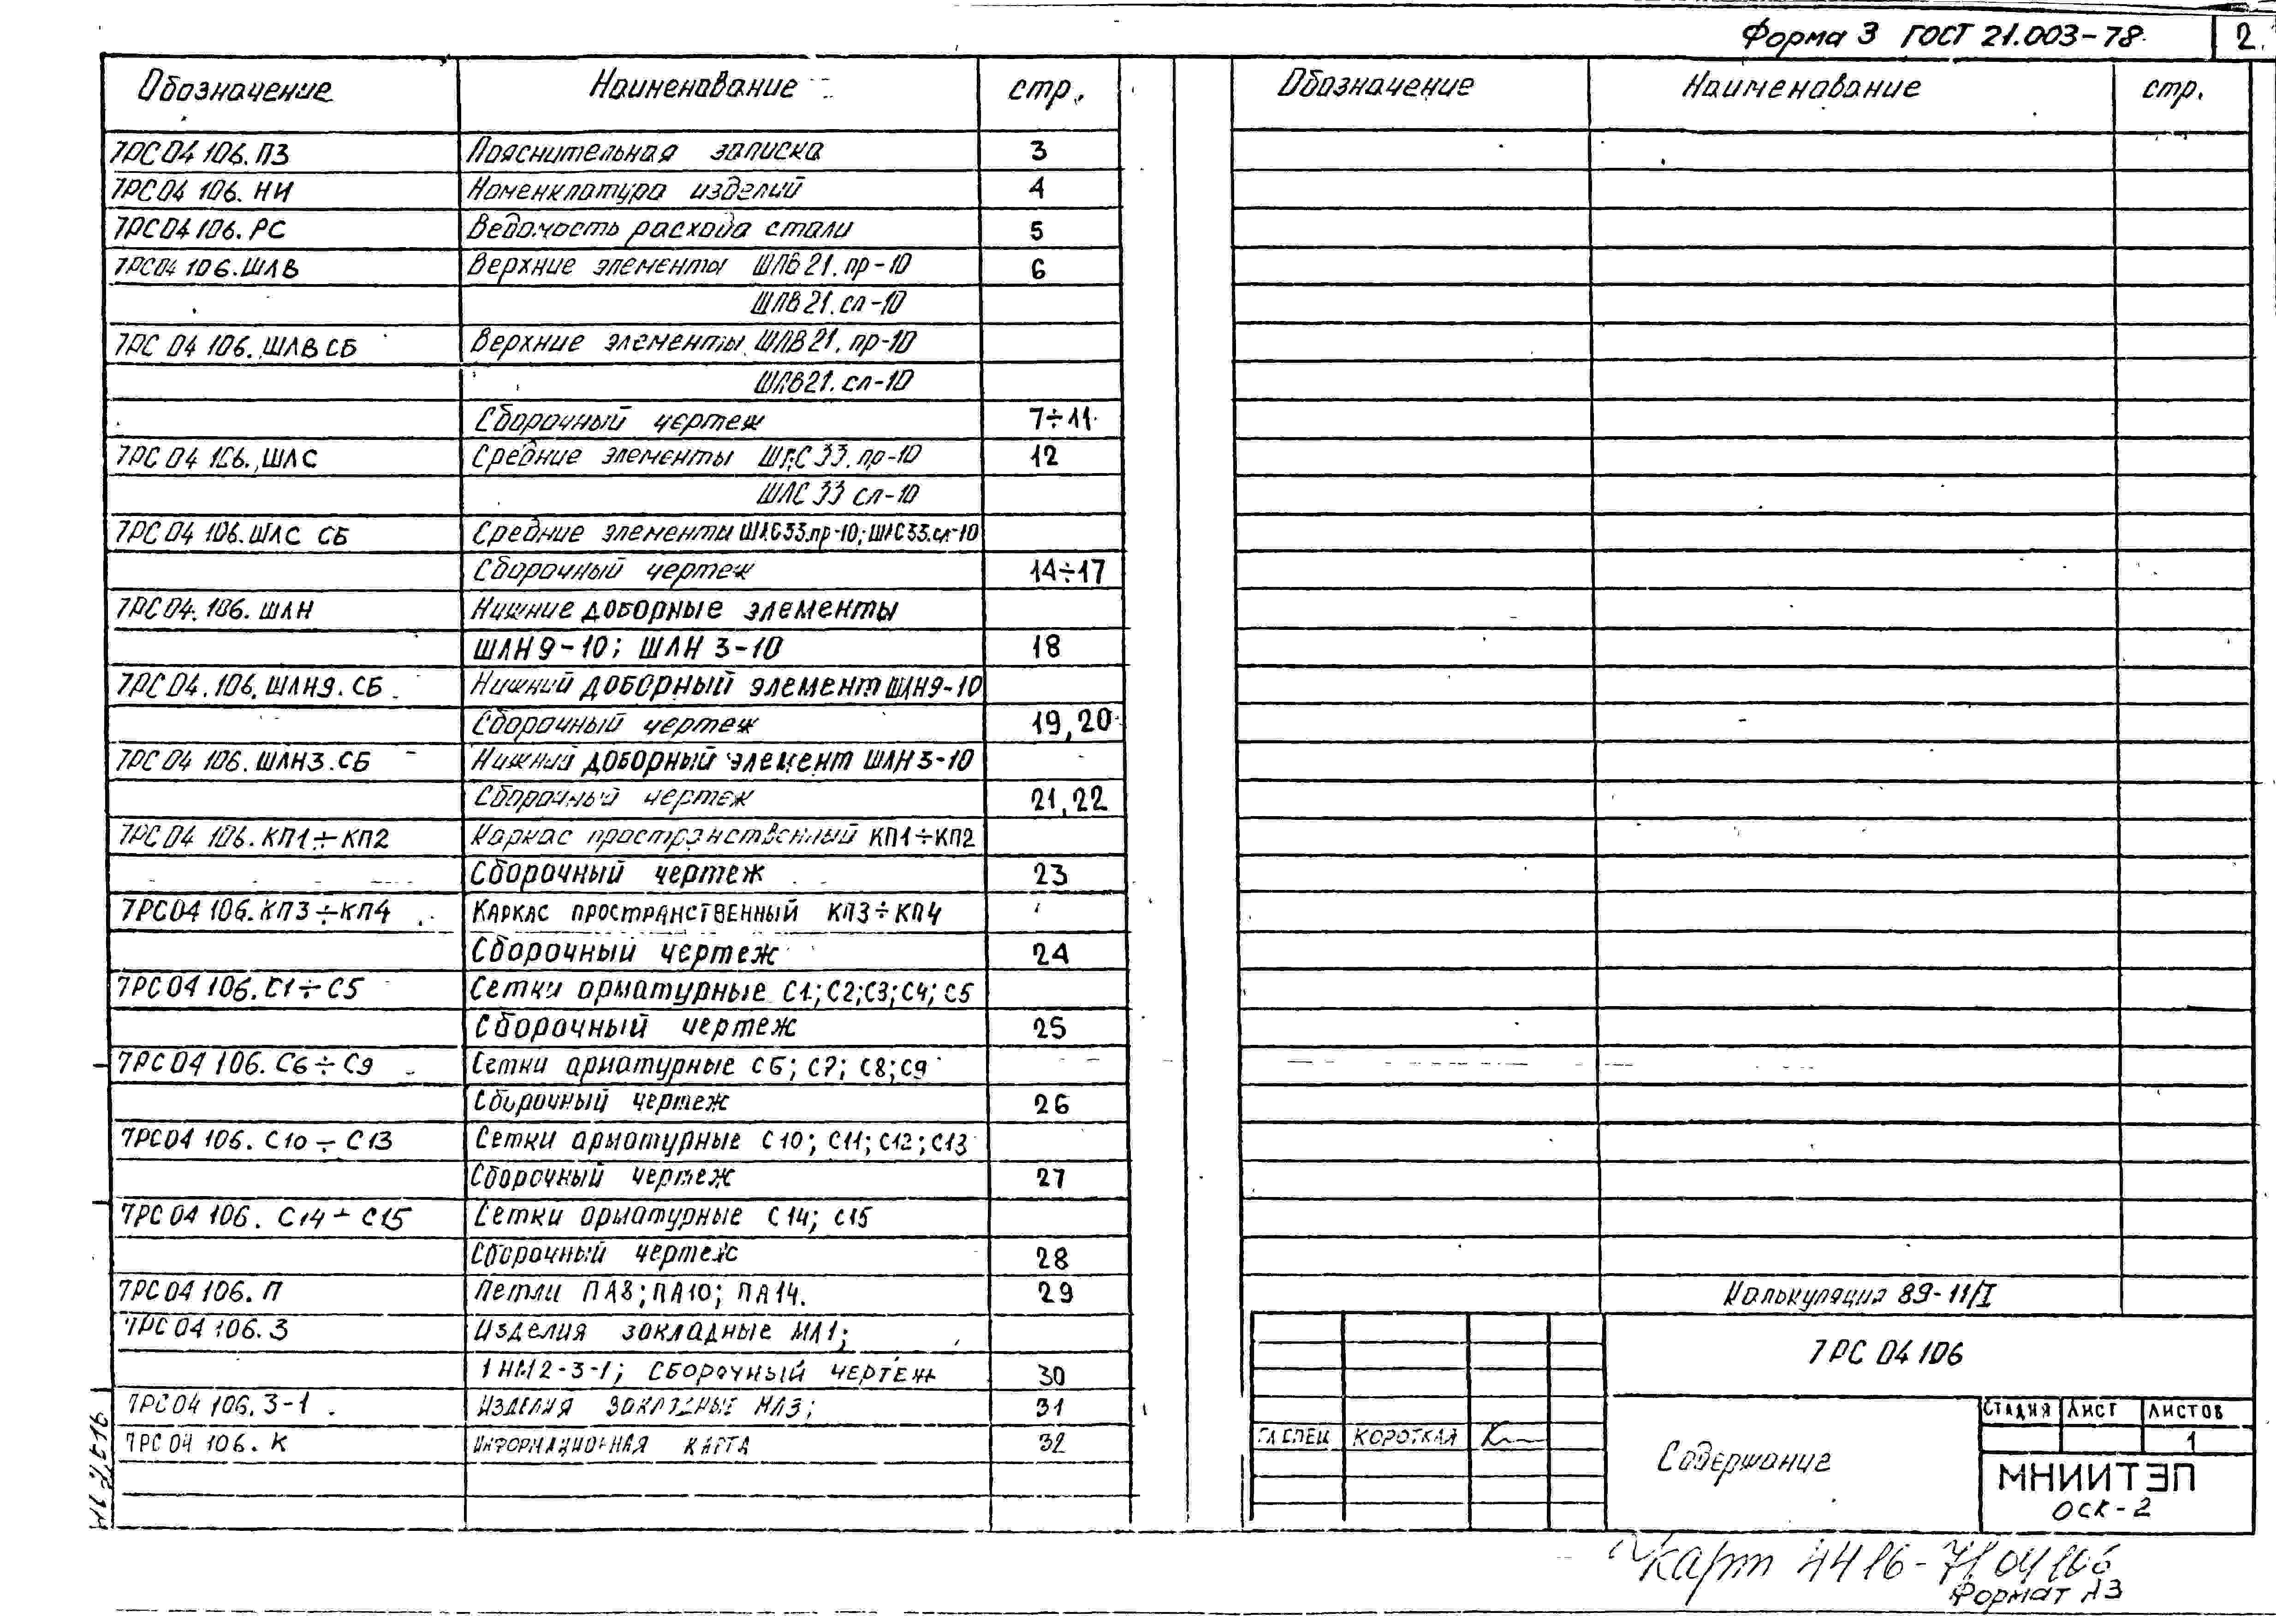 Форма 3 ГОСТ 21.003-78 2.
Обозначение Наименование стр.
7РС 04 106. ПЗ Пояснительная записка 3
7РС 04 106. НИ Номенклатура изделий 4
7РС 04 106. РС Ведомость расхода стали 5
7РС 04 106. ШЛВ Верхние элементы ШЛВ 21. пр-10 6
ШЛВ 21. сл-10
7РС 04 106. ШЛВ СБ Верхние элементы ШЛВ 21. пр-10
ШЛВ 21. сл-10
Сборочный чертеж 7÷11
7РС 04 106. ШЛС Средние элементы ШЛС 33. пр-10 12
ШЛС 33 сл-10
7РС 04 106. ШЛС СБ Средние элементы ШЛС 33. пр-10; ШЛС 33. сл-10
Сборочный чертеж 14÷17
7РС 04. 106. ШЛН Нижние доборные элементы
ШЛН 9-10; ШЛН 3-10 18
7РС 04. 106. ШЛН9. СБ Нижний доборный элемент ШЛН9-10
Сборочный чертеж 19, 20
7РС 04 106. ШЛН3. СБ Нижний доборный элемент ШЛН 3-10
Сборочный чертеж 21, 22
7РС 04 106. КП1÷КП2 Каркас пространственный КП1÷КП2
Сборочный чертеж 23
7РС 04 106. КП3÷КП4 Каркас пространственный КП3÷КП4
Сборочный чертеж 24
7РС 04 106. С1÷С5 Сетки арматурные С1; С2; С3; С4; С5
Сборочный чертеж 25
7РС 04 106. С6÷С9 Сетки арматурные С6; С7; С8; С9
Сборочный чертеж 26
7РС 04 106. С10÷С13 Сетки арматурные С10; С11; С12; С13
Сборочный чертеж 27
7РС 04 106. С14÷С15 Сетки арматурные С14; С15
Сборочный чертеж 28
7РС 04 106. П Петли ПА8; ПА10; ПА14. 29
7РС 04 106. З Изделия закладные МЛ1;
1НМ2-3-1; Сборочный чертеж 30
7РС 04 106. З-1 Изделия закладные МЛ3; 31
7РС 04 106. К Информационная карта 32
Обозначение Наименование стр.
Калькуляция 89-11/I
7РС 04 106
Гл спец Короткая
Содержание
Стадия Лист Листов
1
МНИИТЭП
ОСК-2
Формат А3